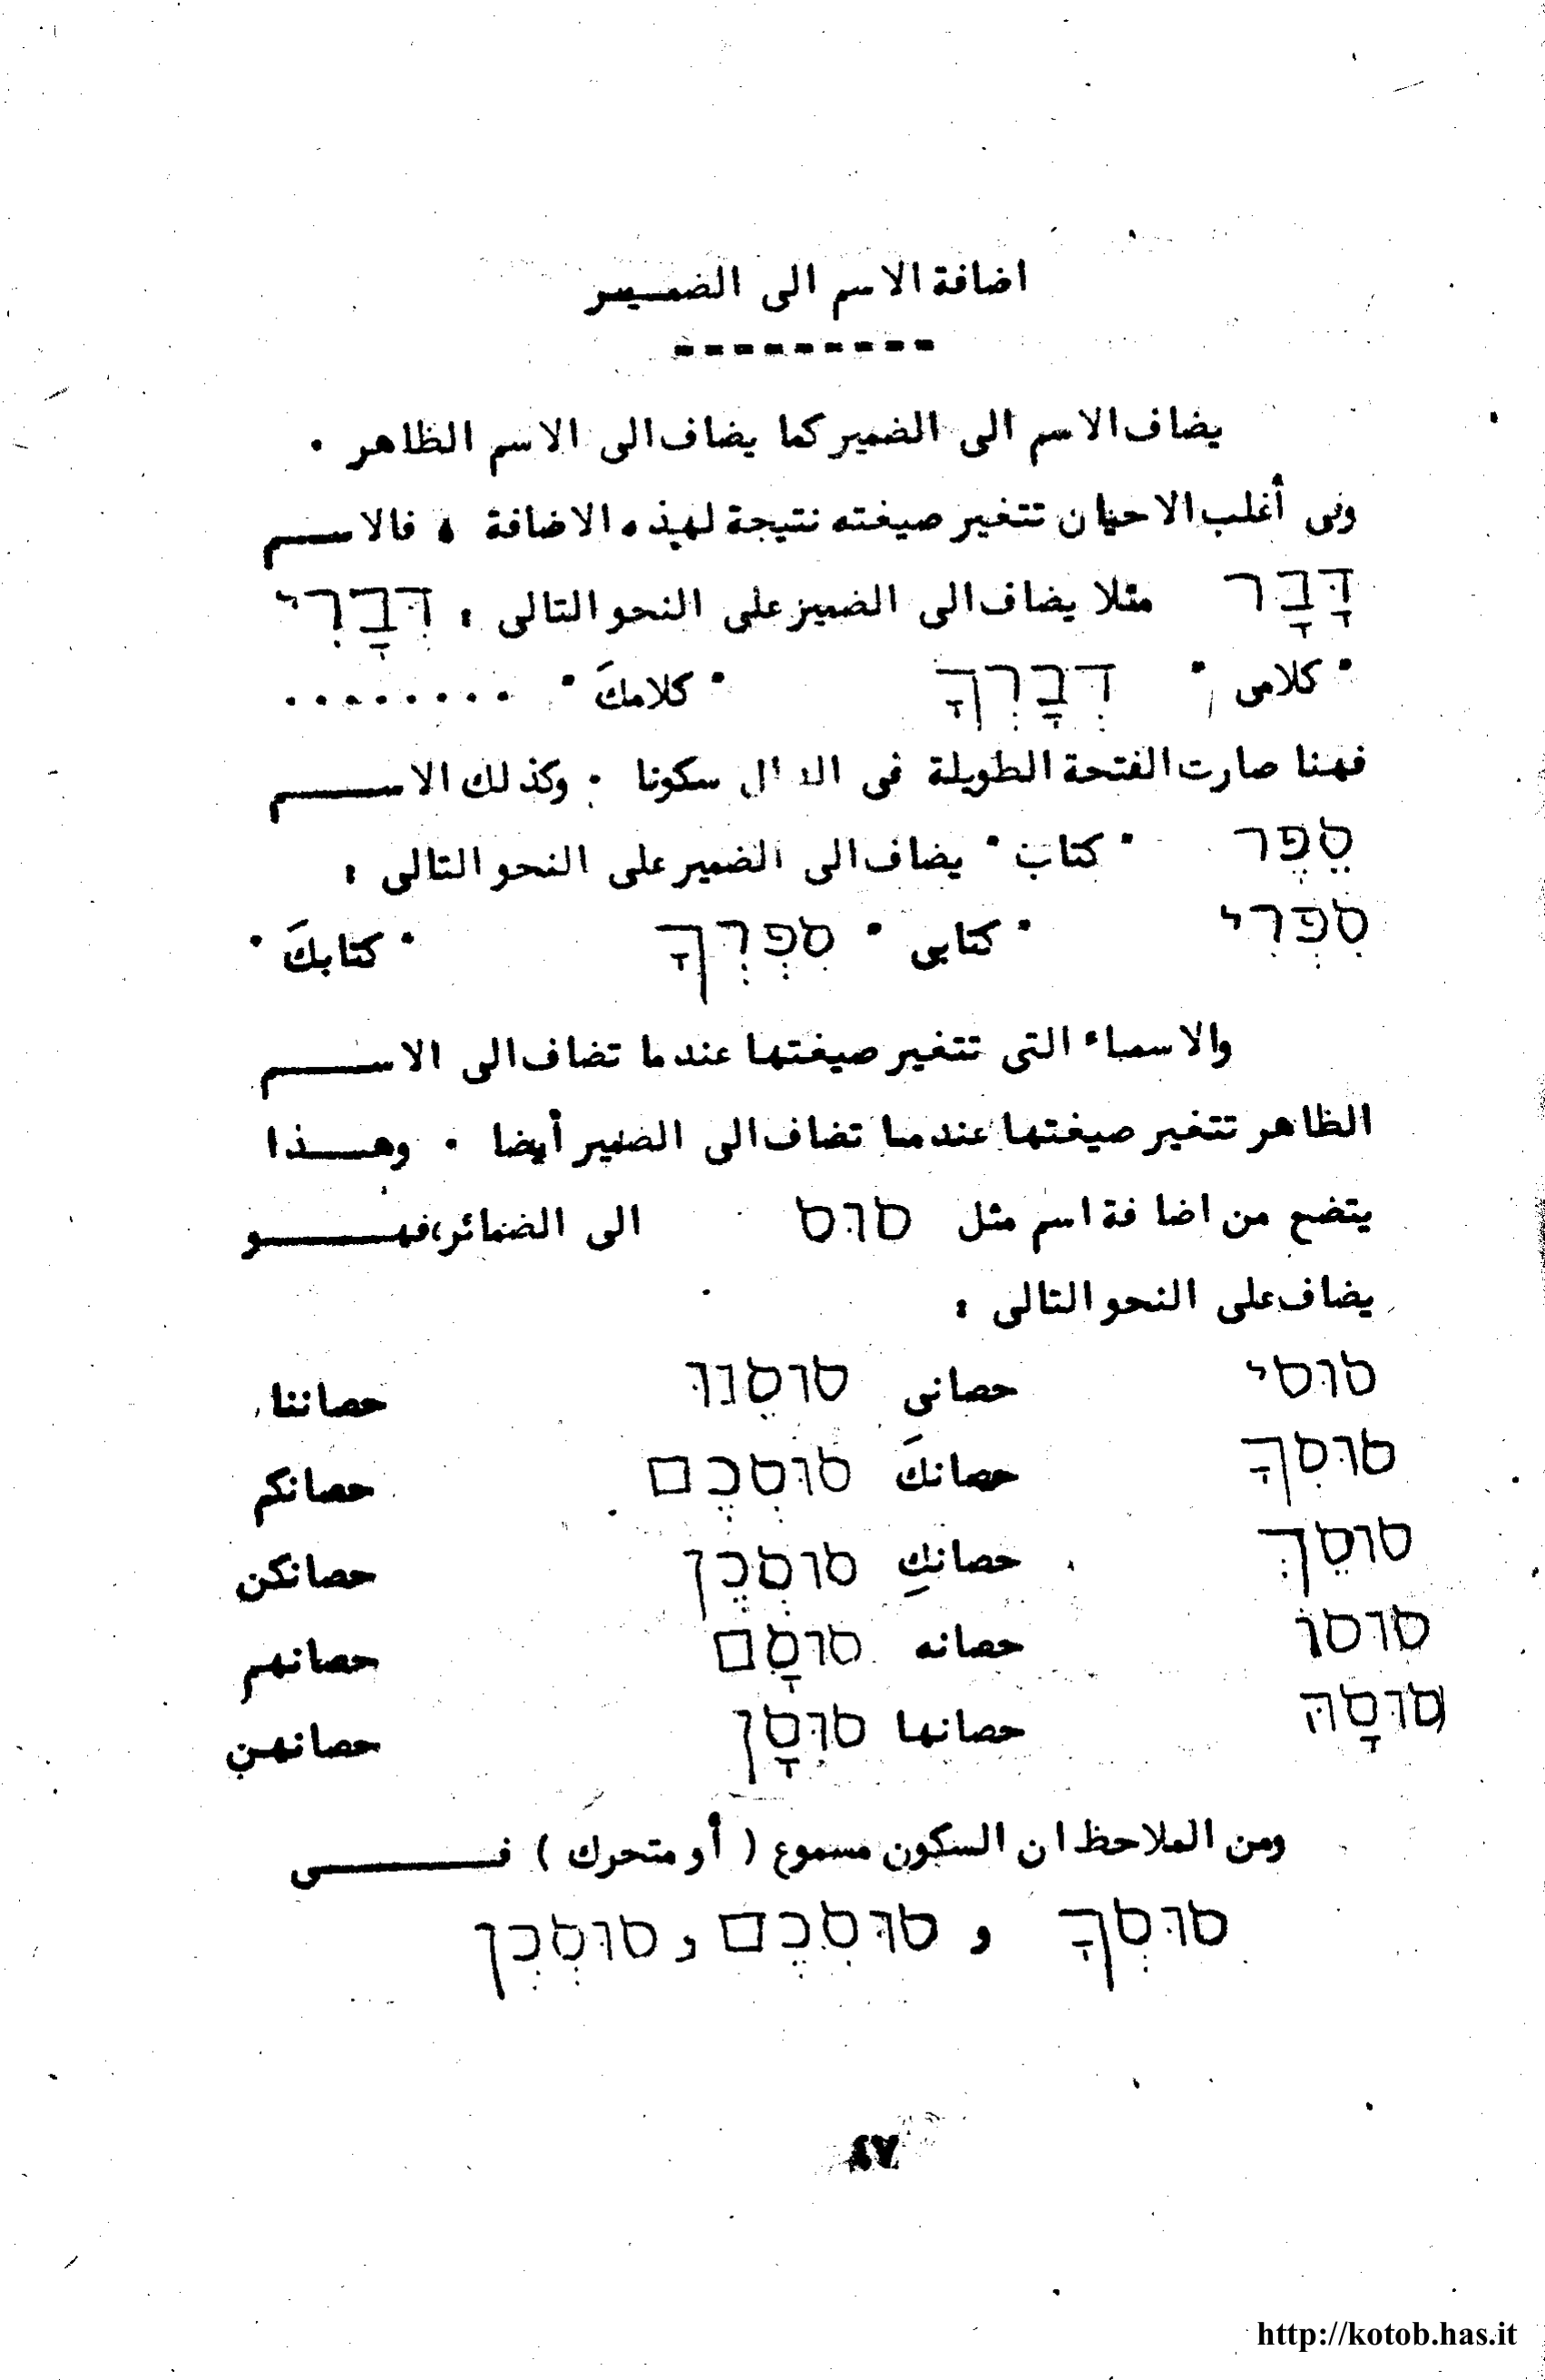 اضافة الاسم الى الضميـر
يضاف الاسم الى الضمير كما يضاف الى الاسم الظاهر .
وفى أغلب الاحيان تتغير صيغته نتيجة لهذه الاضافة ، فالاســم
דָּבָר مثلا يضاف الى الضمير على النحو التالى : דְּבָרִי
" كلامى " , דְּבָרְךָ " كلامكَ " ........
فهنا صارت الفتحة الطويلة فى الدال سكونا . وكذلك الاســـم
סֵפֶר " كتاب " يضاف الى الضمير على النحو التالى :
סִפְרִי " كتابى " סִפְרְךָ " كتابكَ "
والاسماء التى تتغير صيغتها عندما تضاف الى الاســـم
الظاهر تتغير صيغتها عندما تضاف الى الضمير أيضا . وهـــذا
يتضح من اضافة اسم مثل סוּס الى الضمائر، فهـــو
يضاف على النحو التالى :
סוּסִי حصانى סוּסֵנוּ حصاننا
סוּסְךָ حصانكَ סוּסְכֶם حصانكم
סוּסֵךְ حصانكِ סוּסְכֶן حصانكن
סוּסוֹ حصانه סוּסָם حصانهم
סוּסָהּ حصانها סוּסָן حصانهن
ومن الملاحظ ان السكون مسموع ( أو متحرك ) فـــى
סוּסְךָ و סוּסְכֶם و סוּסְכֶן
٤٧
http://kotob.has.it